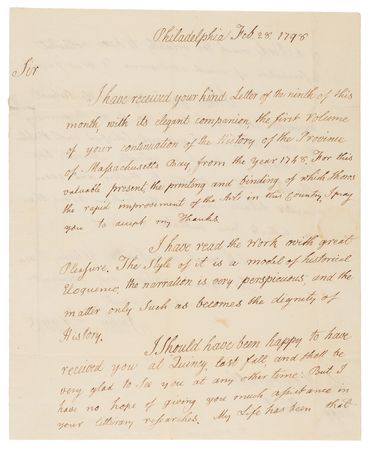 Philadelphia Feb. 28 1798
Sir
I have received your kind Letter of the ninth of this
month, with its elegant companion the first Volume
of your continuation of the History of the Province
of Massachusetts Bay, from the year 1748. For this
valuable present, the printing and binding of which shows
the rapid improvement of the Arts in this Country, I pray
you to accept my Thanks.
I have read the Work with great
Pleasure. The Style of it is a model of historical
Eloquence, the narration is very perspicuous, and the
matter only Such as becomes the dignity of
History.
I Should have been happy to have
received you at Quincy, last fall and shall be
very glad to See you at any other time: But I
have no hope of giving you much assistance in
your litterary researches. My Life has been that